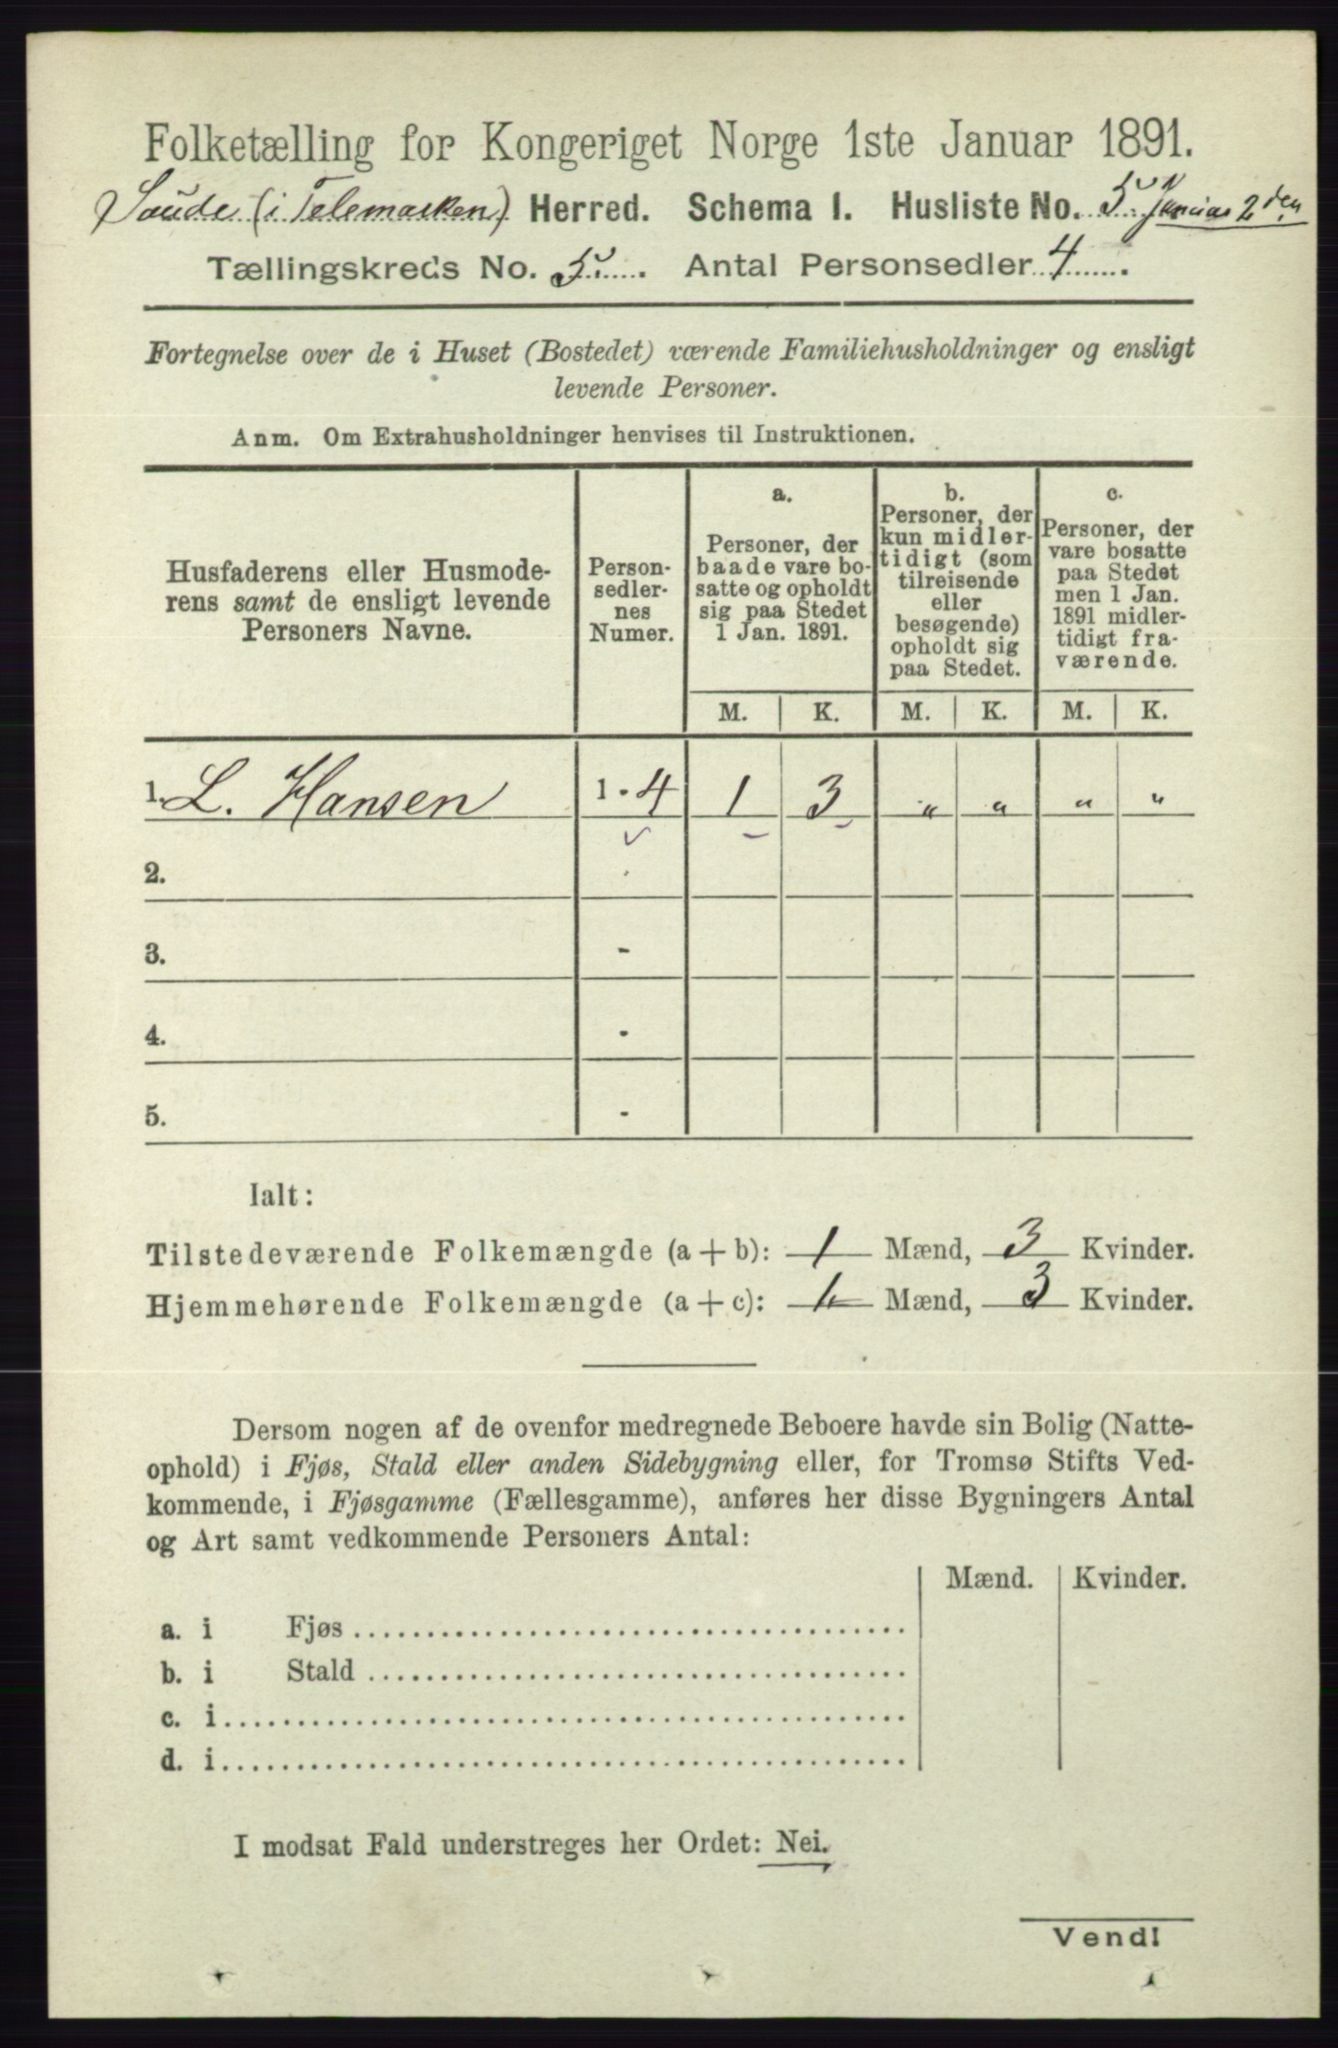 Folketælling for Kongeriget Norge 1ste Januar 1891.
Saude (i Telemarken) Herred. Schema I. Husliste No. 5. 2den
Tællingskreds No. 5. Antal Personsedler 4.
Fortegnelse over de i Huset (Bostedet) værende Familiehusholdninger og ensligt
levende Personer.
Anm. Om Extrahusholdninger henvises til Instruktionen.
Husfaderens eller Husmode-
rens samt de ensligt levende
Personers Navne.
Person-
sedler-
nes
Numer.
a.
Personer, der
baade vare bo-
satte og opholdt
sig paa Stedet
1 Jan. 1891.
b.
Personer, der
kun midler-
tidigt (som
tilreisende
eller
besøgende)
opholdt sig
paa Stedet.
c.
Personer, der
vare bosatte
paa Stedet
men 1 Jan.
1891 midler-
tidigt fra-
værende.
M. K. M. K. M. K.
1. L. Hansen 1 - 4 1 3 „ „ „ „
2.
3. -
4. -
5. -
Ialt:
Tilstedeværende Folkemængde (a + b): 1 Mænd, 3 Kvinder.
Hjemmehørende Folkemængde (a + c): 1 Mænd, 3 Kvinder.
Dersom nogen af de ovenfor medregnede Beboere havde sin Bolig (Natte-
ophold) i Fjøs, Stald eller anden Sidebygning eller, for Tromsø Stifts Ved-
kommende, i Fjøsgamme (Fællesgamme), anføres her disse Bygningers Antal
og Art samt vedkommende Personers Antal:
Mænd. Kvinder.
a. i Fjøs
b. i Stald
c. i
d. i
I modsat Fald understreges her Ordet: Nei.
Vend!